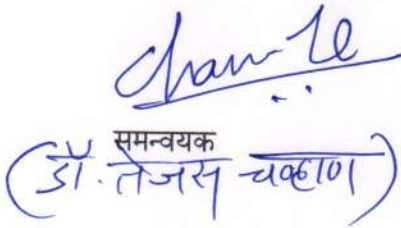 समन्वयक
(डॉ. तेजस चव्हाण)